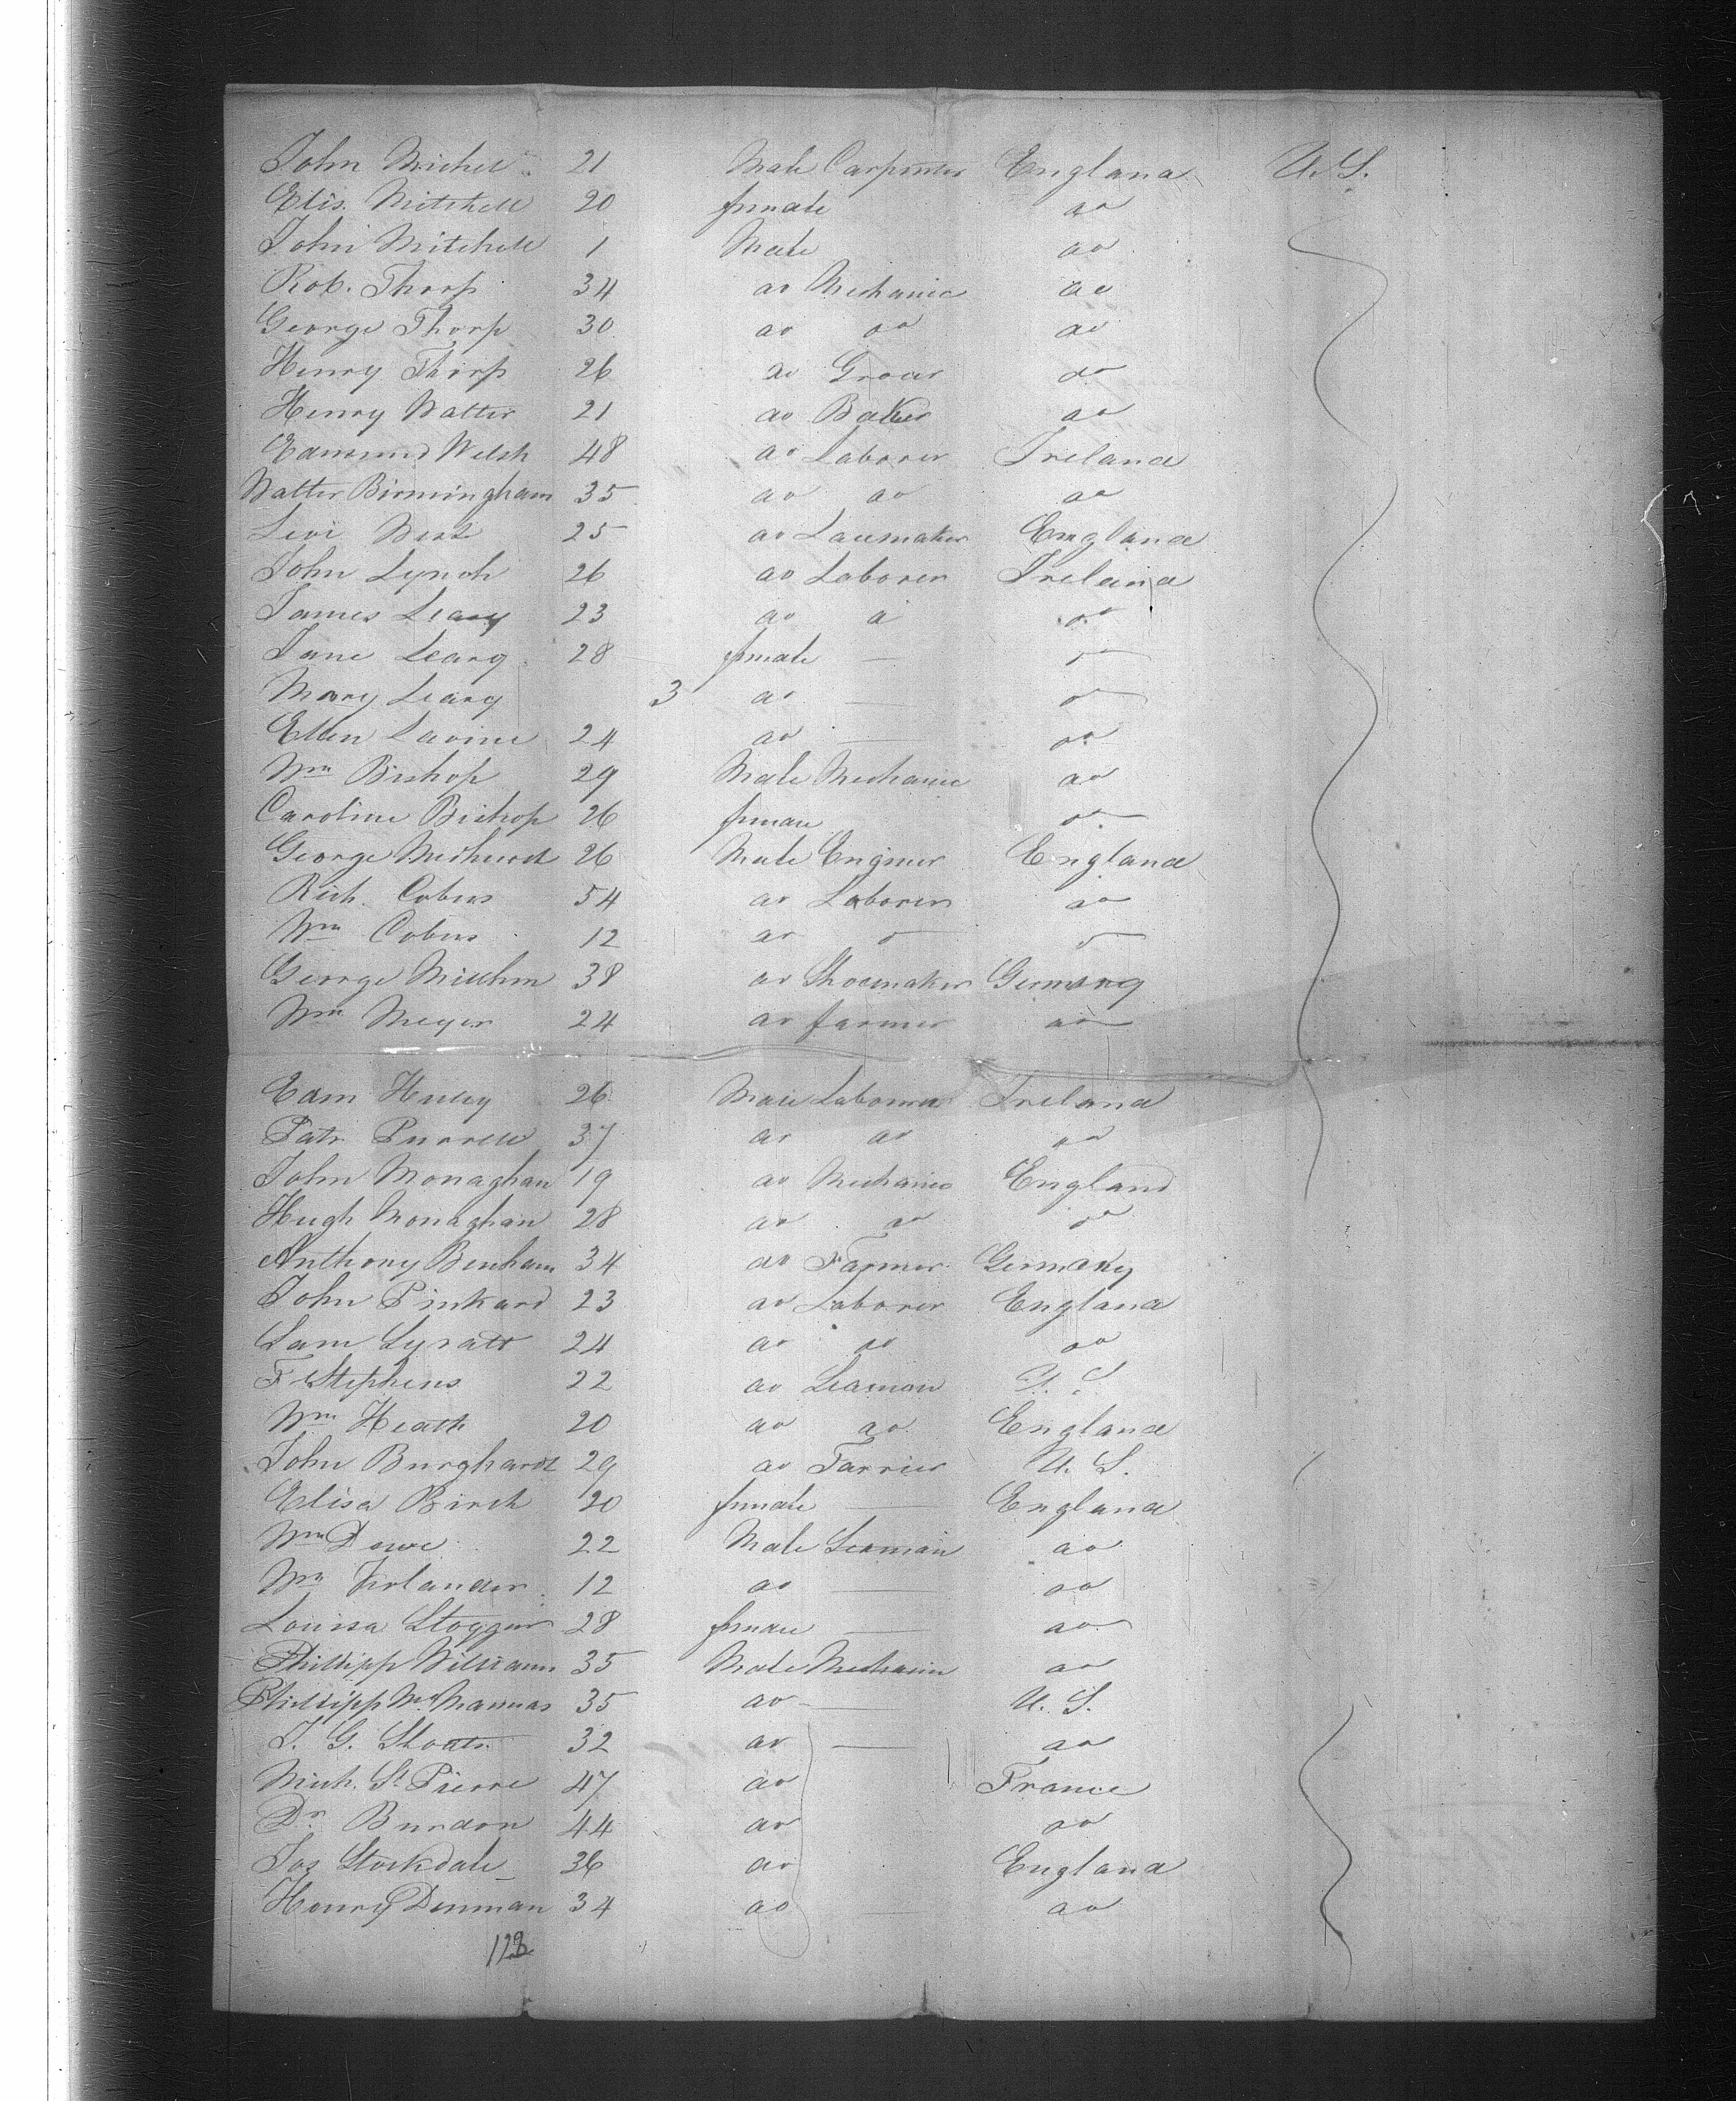 John Michell 21 Male Carpenter England U. S.
Elis. Mitchell 20 female do
John Mitchell 1 Male do
Rob. Thorp 34 do Mechanic do
George Thorp 30 do do do
Henry Thorp 26 do Grocer do
Henry Walter 21 do Baker do
Edmund Welsh 48 do Laborer Ireland
Walter Birmingham 35 do do do
Levi West 25 do Lacemaker England
John Lynch 26 do Laborer Ireland
James Leary 23 do d do
Jane Leary 28 female — do
Mary Leary 3 do — do
Ellen Lavine 24 do — do
Wm Bishop 29 Male Mechanic do
Caroline Bishop 26 female do
George Medhurst 26 Male Engineer England
Rich. Cobus 54 do Laborer do
Wm Cobus 12 do do do
George 38 do Shoemaker Germany
Wm Meyer 24 do farmer do
Edm 26 Male Laborer Ireland
Patr Purcell 37 do do do
John Monaghan 19 do Mechanic England
Hugh Monaghan 28 do do do
Anthony Benham 34 do Farmer Germany
John Pinkard 23 do Laborer England
Sam Syratt 24 do do do
F Stephens 22 do Seaman U. S
Wm Heath 20 do do England
John Burghardt 29 do Farrier U. S.
Elisa Birch 20 female — England
Wm Dowe 22 Male Seaman do
Wm 12 do — do
Louisa 28 female — do
Phillipp Williams 35 Male Mechanic do
Phillipp McMannas 35 do — U. S.
G. 32 do — do
Mich. St Pierre 47 do France
Dr Burdon 44 do do
Jos Stockdale 36 do England
Henry Denman 34 do — do